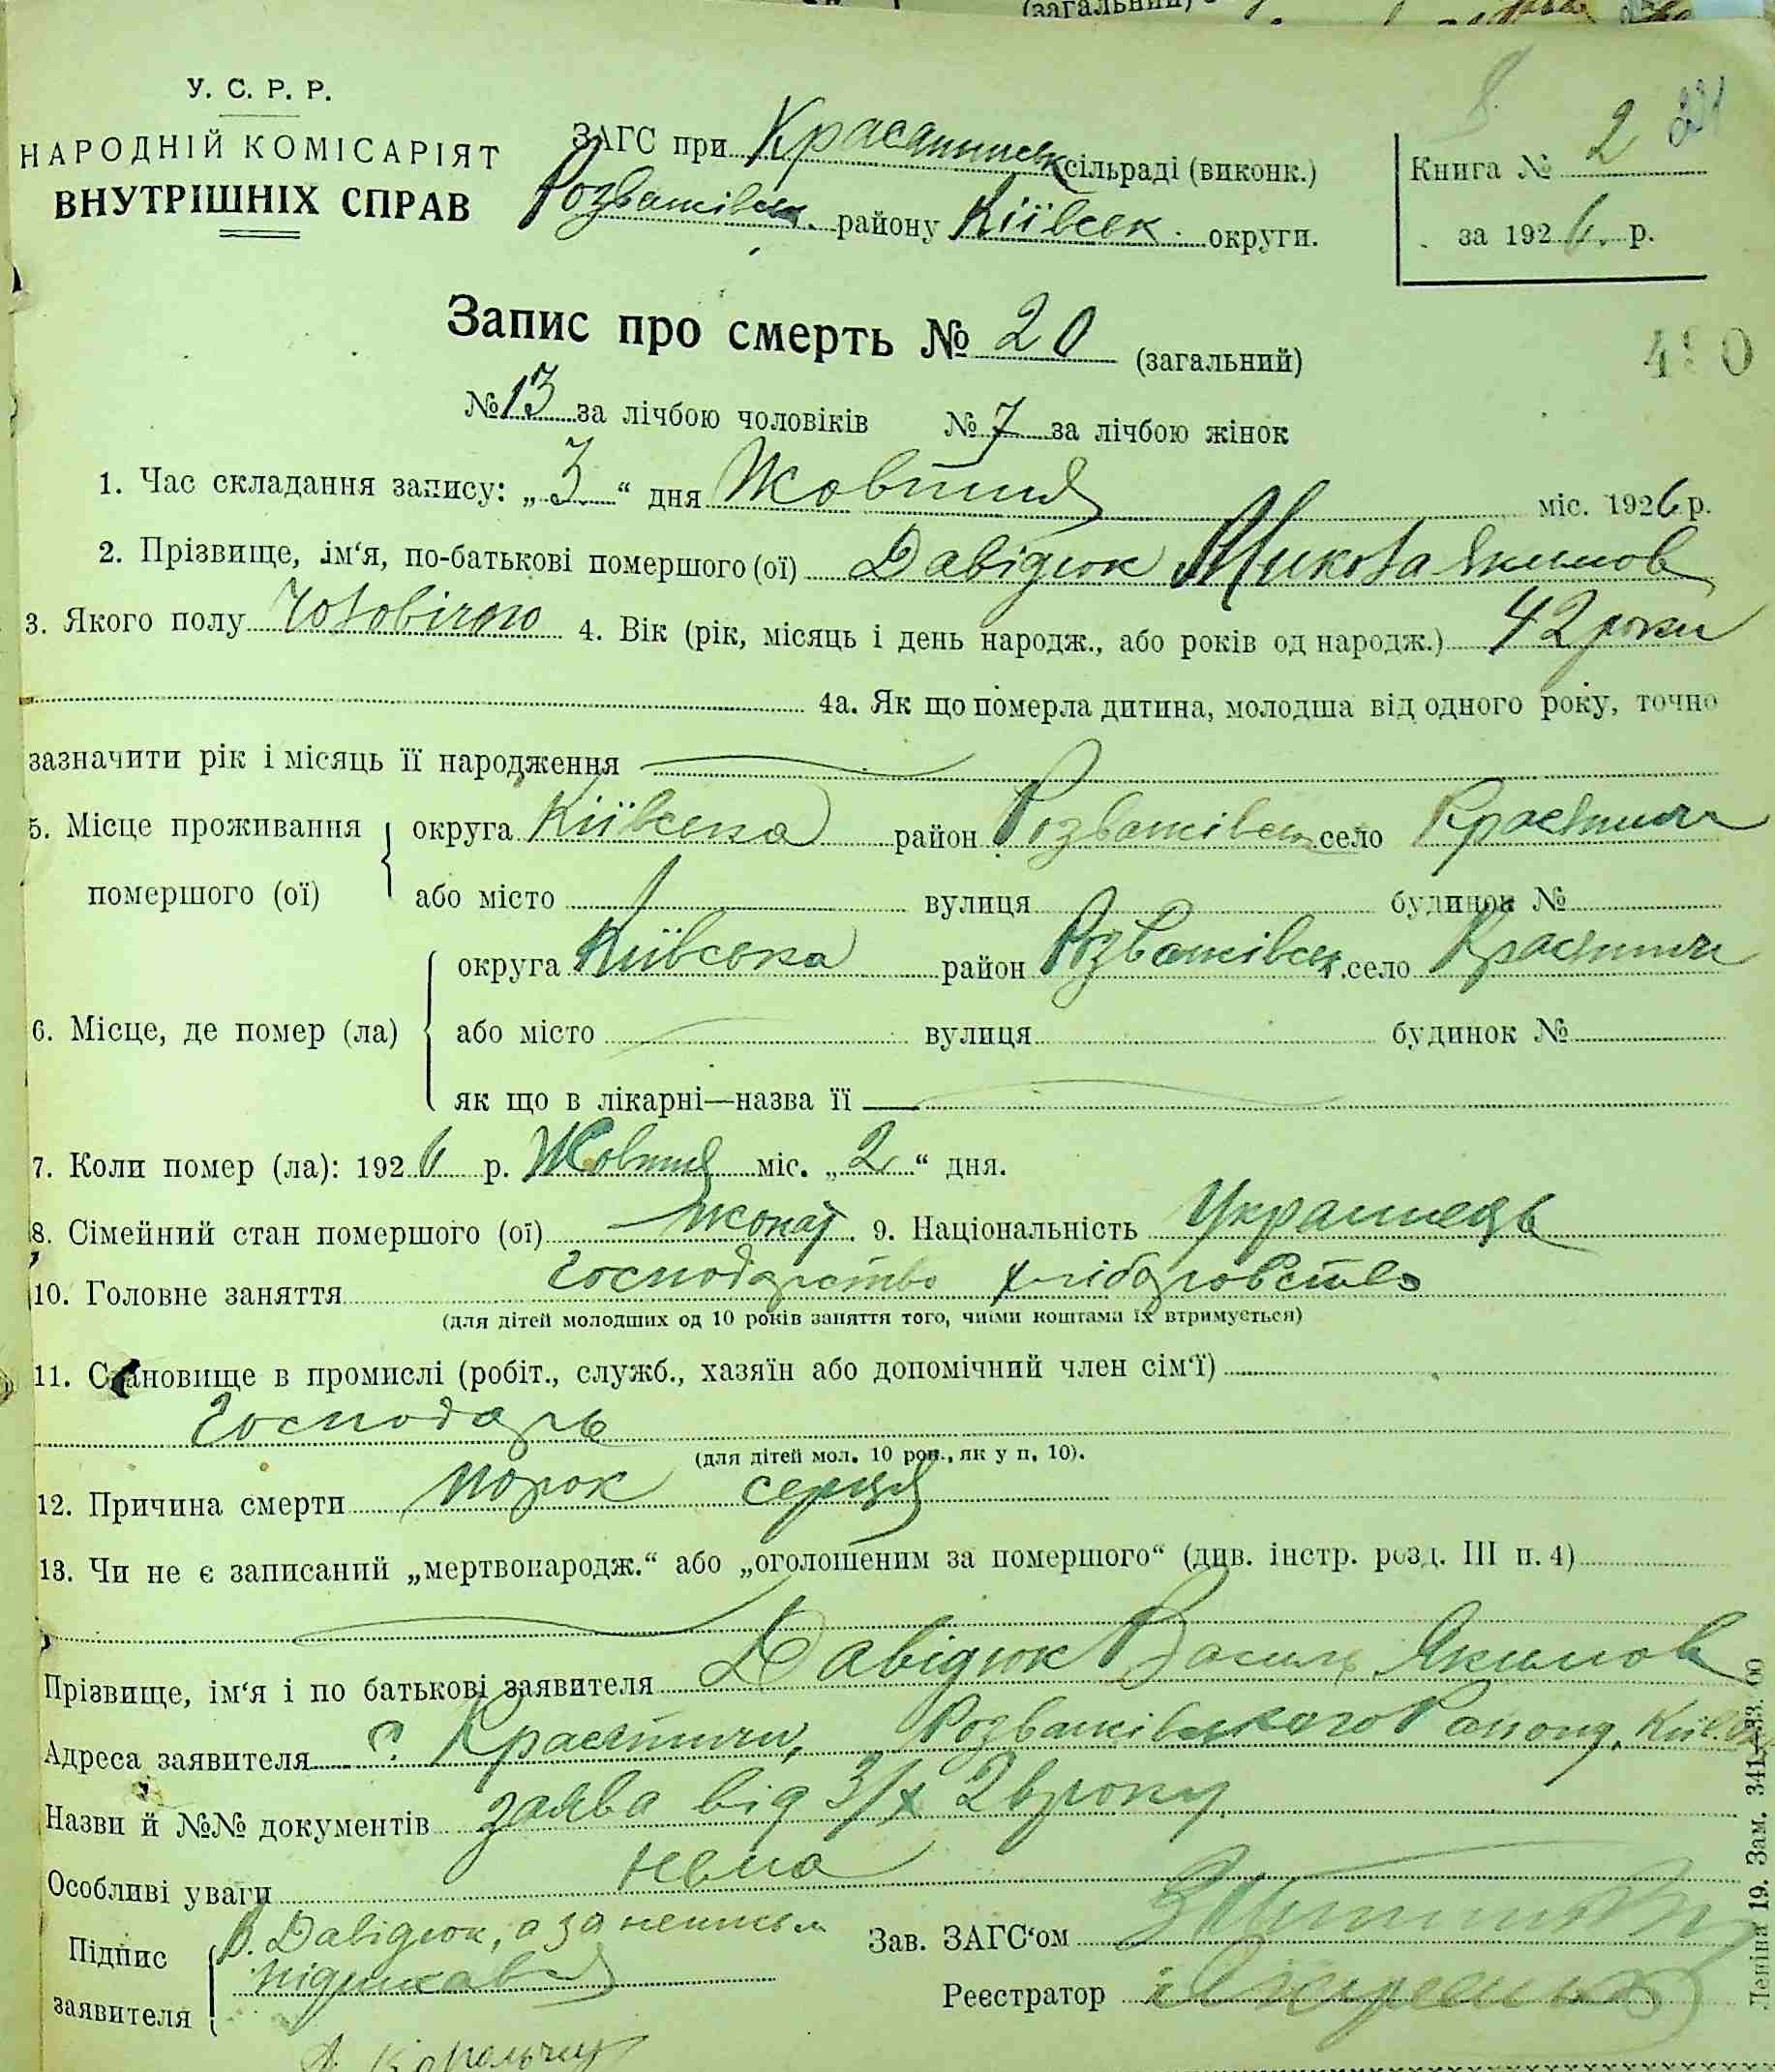 (загальний)
У. С. Р. Р.
НАРОДНІЙ КОМІСАРІЯТ
ВНУТРІШНІХ СПРАВ
ЗАГС при Красятицьк сільраді (виконк.)
Розважівськ. району Київськ. округи.
Книга № 2
за 1926. р.
221
Запис про смерть № 20 (загальний)
№ 13 за лічбою чоловіків № 7 за лічбою жінок
1. Час складання запису: „3“ дня Жовтня міс. 1926 р.
2. Прізвище, ім‘я, по-батькові помершого (ої) Давідюк Микола Якимов
3. Якого полу Чоловічого 4. Вік (рік, місяць і день народж., або років од народж.) 42 роки
4а. Як що померла дитина, молодша від одного року, точно
зазначити рік і місяць її народження
5. Місце проживання помершого (ої) округа Київська район Розважівськ село Красятичи
або місто вулиця будинок №
6. Місце, де помер (ла) округа Київська район Розважівськ. село Красятичи
або місто вулиця будинок №
як що в лікарні—назва її
7. Коли помер (ла): 1926 р. Жовтня міс. „2“ дня.
8. Сімейний стан помершого (ої) жонат. 9. Національність Українець
10. Головне заняття господарство хліборобство
(для дітей молодших од 10 років заняття того, чиїми коштами їх втримується)
11. Становище в промислі (робіт., служб., хазяїн або допомічний член сім‘ї)
Господарь
(для дітей мол. 10 рок., як у п. 10).
12. Причина смерти порок серця
13. Чи не є записаний „мертвонародж.“ або „оголошеним за помершого“ (див. інстр. розд. III п. 4)
Прізвище, ім‘я і по батькові заявителя Давідюк Василь Якимов
Адреса заявителя с. Красятичи, Розважівського Району, Київ.
Назви й №№ документів заява від 3/X 26 року
Особливі уваги нема
Підпис заявителя В. Давідюк, а за неписьм
підписався
Зав. ЗАГС‘ом
Реєстратор
Леніна 19. Зам. 341—33. 00